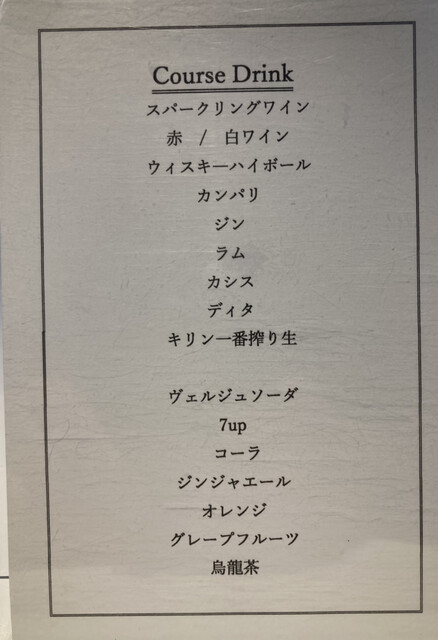 Course Drink
スパークリングワイン
赤 / 白ワイン
ウィスキーハイボール
カンパリ
ジン
ラム
カシス
ディタ
キリン一番搾り生
ヴェルジュソーダ
7up
コーラ
ジンジャエール
オレンジ
グレープフルーツ
烏龍茶